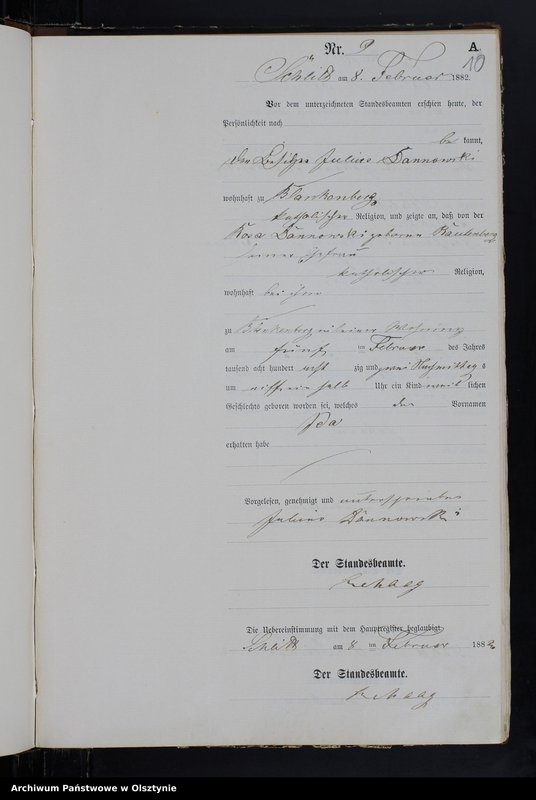 Nr. 9
A.
10
Schlitt am 8. Februar 1882.
Vor dem unterzeichneten Standesbeamten erschien heute, der
Persönlichkeit nach
be kannt,
der Besitzer Julius Dannowski
wohnhaft zu Blankenberg
katholischer Religion, und zeigte an, daß von der
Rosa Dannowski geborene
seiner Ehefrau
katholischer Religion,
wohnhaft bei ihm
zu Blankenberg in seiner Wohnung
am fünf ten Februar des Jahres
tausend acht hundert acht zig und zwei Nachmittags
um elf ein halb Uhr ein Kind weib lichen
Geschlechts geboren worden sei, welches den Vornamen
Ida
erhalten habe
Vorgelesen, genehmigt und unterschrieben
Julius Dannowski
Der Standesbeamte.
Die Uebereinstimmung mit dem Hauptregister beglaubigt
Schlitt am 8 ten Februar 1882
Der Standesbeamte.
Archiwum Państwowe w Olsztynie